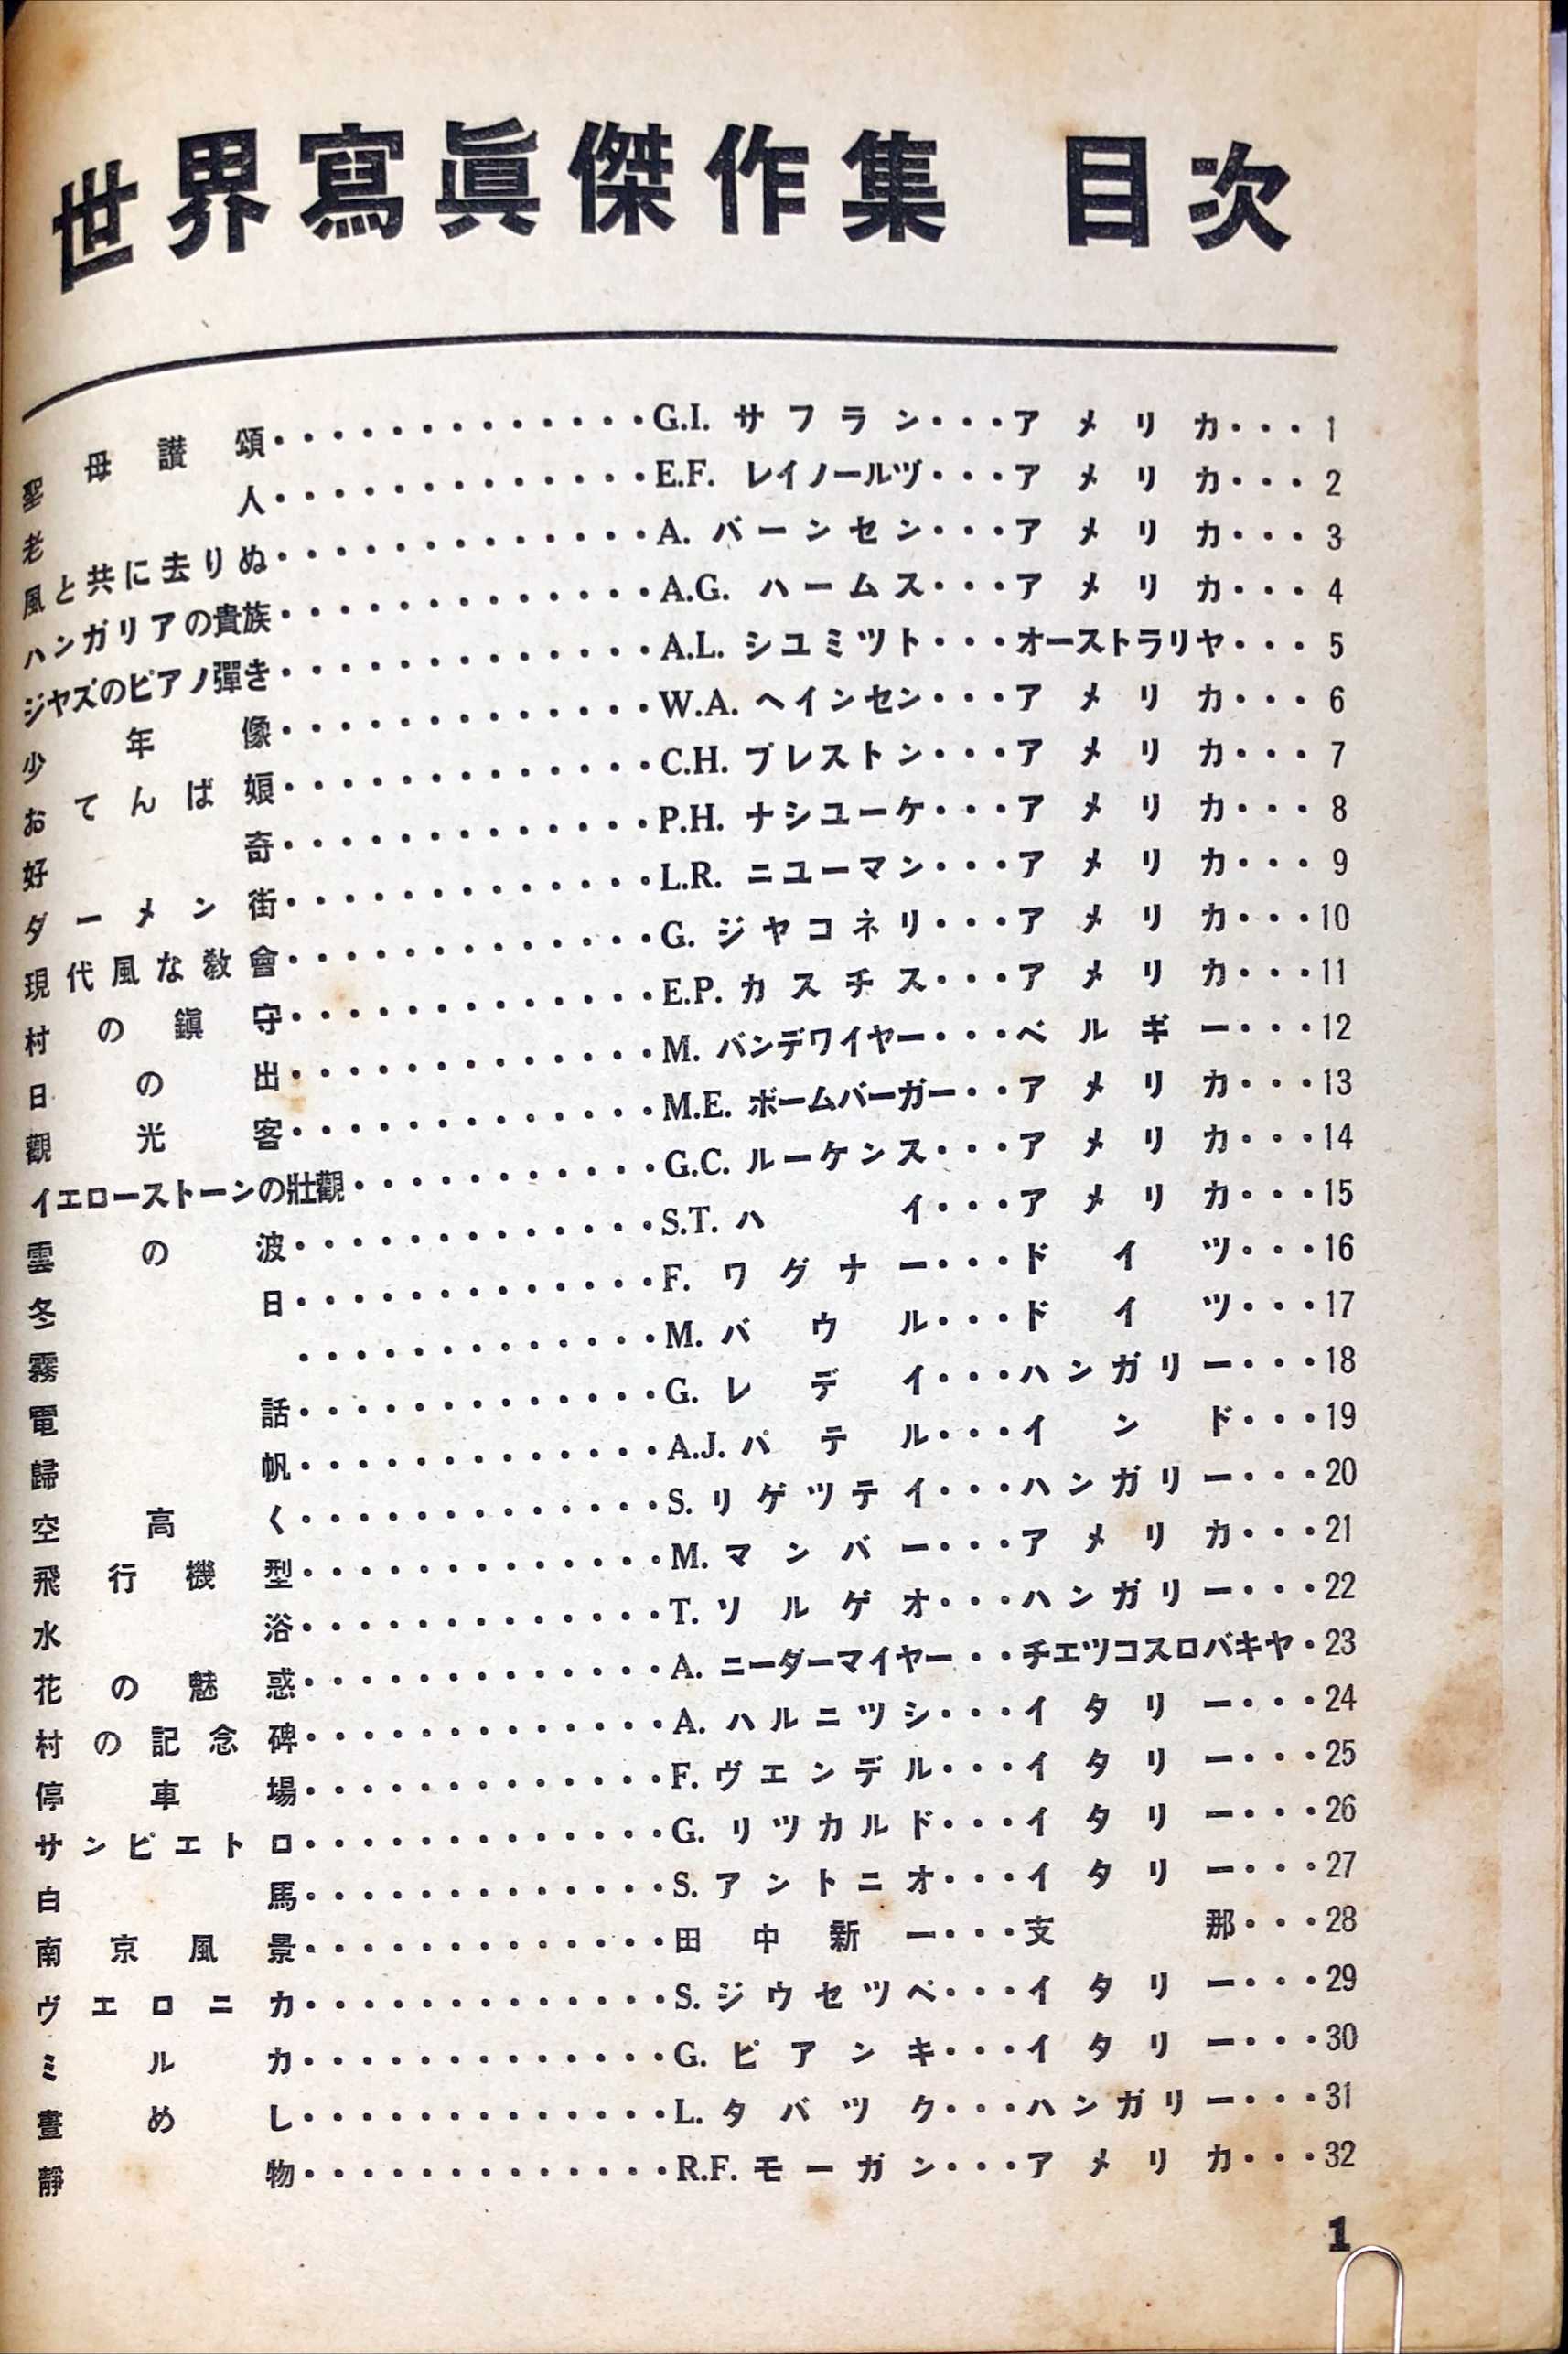 世界寫眞傑作集 目次
聖母讃頌・・・・・・・・・・・・・G.I. サフラン・・・アメリカ・・・1
老人・・・・・・・・・・・・・E.F. レイノールヅ・・・アメリカ・・・2
風と共に去りぬ・・・・・・・・・・・・・A. バーンセン・・・アメリカ・・・3
ハンガリアの貴族・・・・・・・・・・・・・A.G. ハームス・・・アメリカ・・・4
ジヤズのピアノ彈き・・・・・・・・・・・・・A.L. シユミツト・・・オーストラリヤ・・・5
少年像・・・・・・・・・・・・・W.A. ヘインセン・・・アメリカ・・・6
おてんば娘・・・・・・・・・・・・・C.H. プレストン・・・アメリカ・・・7
好奇・・・・・・・・・・・・・P.H. ナシユーケ・・・アメリカ・・・8
ダーメン街・・・・・・・・・・・・・L.R. ニユーマン・・・アメリカ・・・9
現代風な敎會・・・・・・・・・・・・・G. ジヤコネリ・・・アメリカ・・・10
村の鎭守・・・・・・・・・・・・・E.P. カスチス・・・アメリカ・・・11
日の出・・・・・・・・・・・・・M. バンデワイヤー・・・ベルギー・・・12
觀光客・・・・・・・・・・・・・M.E. ボームバーガー・・アメリカ・・・13
イエローストーンの壯觀・・・・・・・・・・・G.C. ルーケンス・・・アメリカ・・・14
雲の波・・・・・・・・・・・・・S.T. ハイ・・・アメリカ・・・15
冬日・・・・・・・・・・・・・F. ワグナー・・・ドイツ・・・16
霧・・・・・・・・・・・・・M. バウル・・・ドイツ・・・17
電話・・・・・・・・・・・・・G. レデイ・・・ハンガリー・・・18
歸帆・・・・・・・・・・・・・A.J. パテル・・・インド・・・19
空高く・・・・・・・・・・・・・S. リゲツテイ・・・ハンガリー・・・20
飛行機型・・・・・・・・・・・・・M. マンバー・・・アメリカ・・・21
水浴・・・・・・・・・・・・・T. ソルゲオ・・・ハンガリー・・・22
花の魅惑・・・・・・・・・・・・・A. ニーダーマイヤー・・チエツコスロバキヤ・23
村の記念碑・・・・・・・・・・・・・A. ハルニツシ・・・イタリー・・・24
停車場・・・・・・・・・・・・・F. ヴエンデル・・・イタリー・・・25
サンピエトロ・・・・・・・・・・・・・G. リツカルド・・・イタリー・・・26
白馬・・・・・・・・・・・・・S. アントニオ・・・イタリー・・・27
南京風景・・・・・・・・・・・・・田中新一・・・支那・・・28
ヴエロニカ・・・・・・・・・・・・・S. ジウセツペ・・・イタリー・・・29
ミルカ・・・・・・・・・・・・・G. ピアンキ・・・イタリー・・・30
晝めし・・・・・・・・・・・・・L. タバツク・・・ハンガリー・・・31
靜物・・・・・・・・・・・・・R.F. モーガン・・・アメリカ・・・32
1